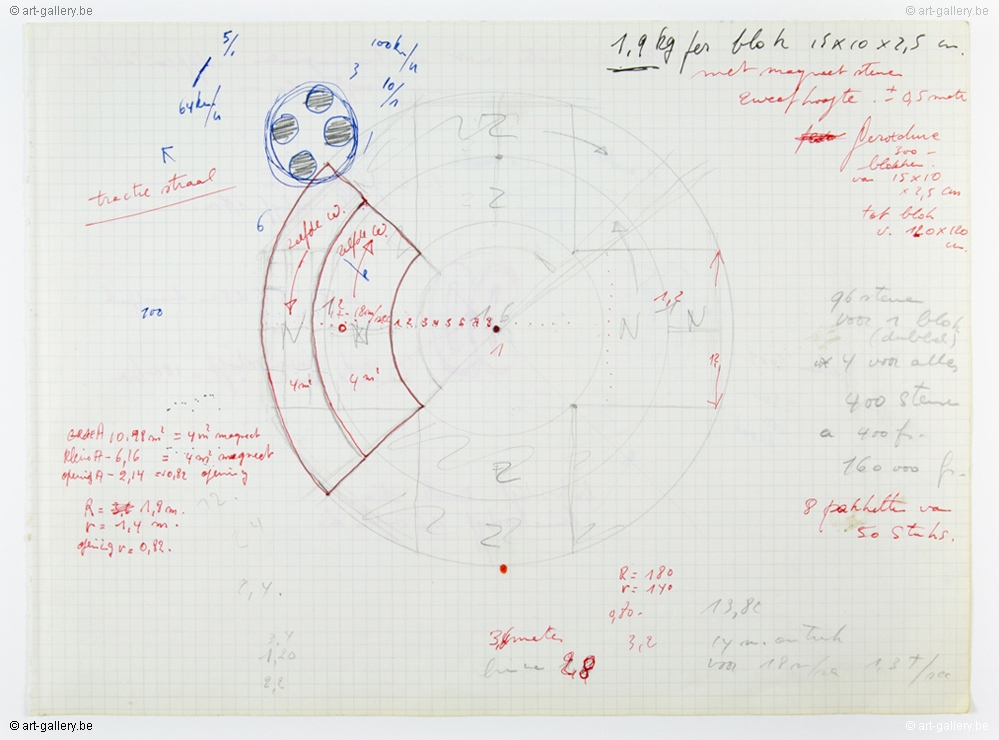 © art-gallery.be
© art-gallery.be
5/1
64 km/u
100 km/u
3
10/1
1
6
100
tractie straal
1,9 kg per blok 15 x 10 x 2,5 cm.
met magneet stenen
zweefhoogte . ± 0,5 meter
300 -
blokken.
van 15 x 10
x 2,5 cm
tot blok
v. 120 x 120
cm.
Z
Z
zelfde w.
zelfde w.
N
1 2 3 4 5 6 7 8
1,6
1
N
N
1,2
4 m²
4 m²
96 stenen
voor 1 blok
(dubbel)
x 4 voor alles
400 stenen
a 400 fr.
160 000 fr.
8 pakketten van
50 stuks.
A 10,98 m² = 4 m² magneet
klein A - 6,16 = 4 m² magneet
opening A - 2,14 = 0,82 opening
R = 1,8 m.
r = 1,4 m.
opening r = 0,82.
Z
Z
2,4.
3,4
1,20
2,2
R = 180
r = 140
0,80-
3,2
3,6 meter
2,8
13,82
14 m. omtrek
voor 18 m/sec 1,3 t/sec
© art-gallery.be
© art-gallery.be